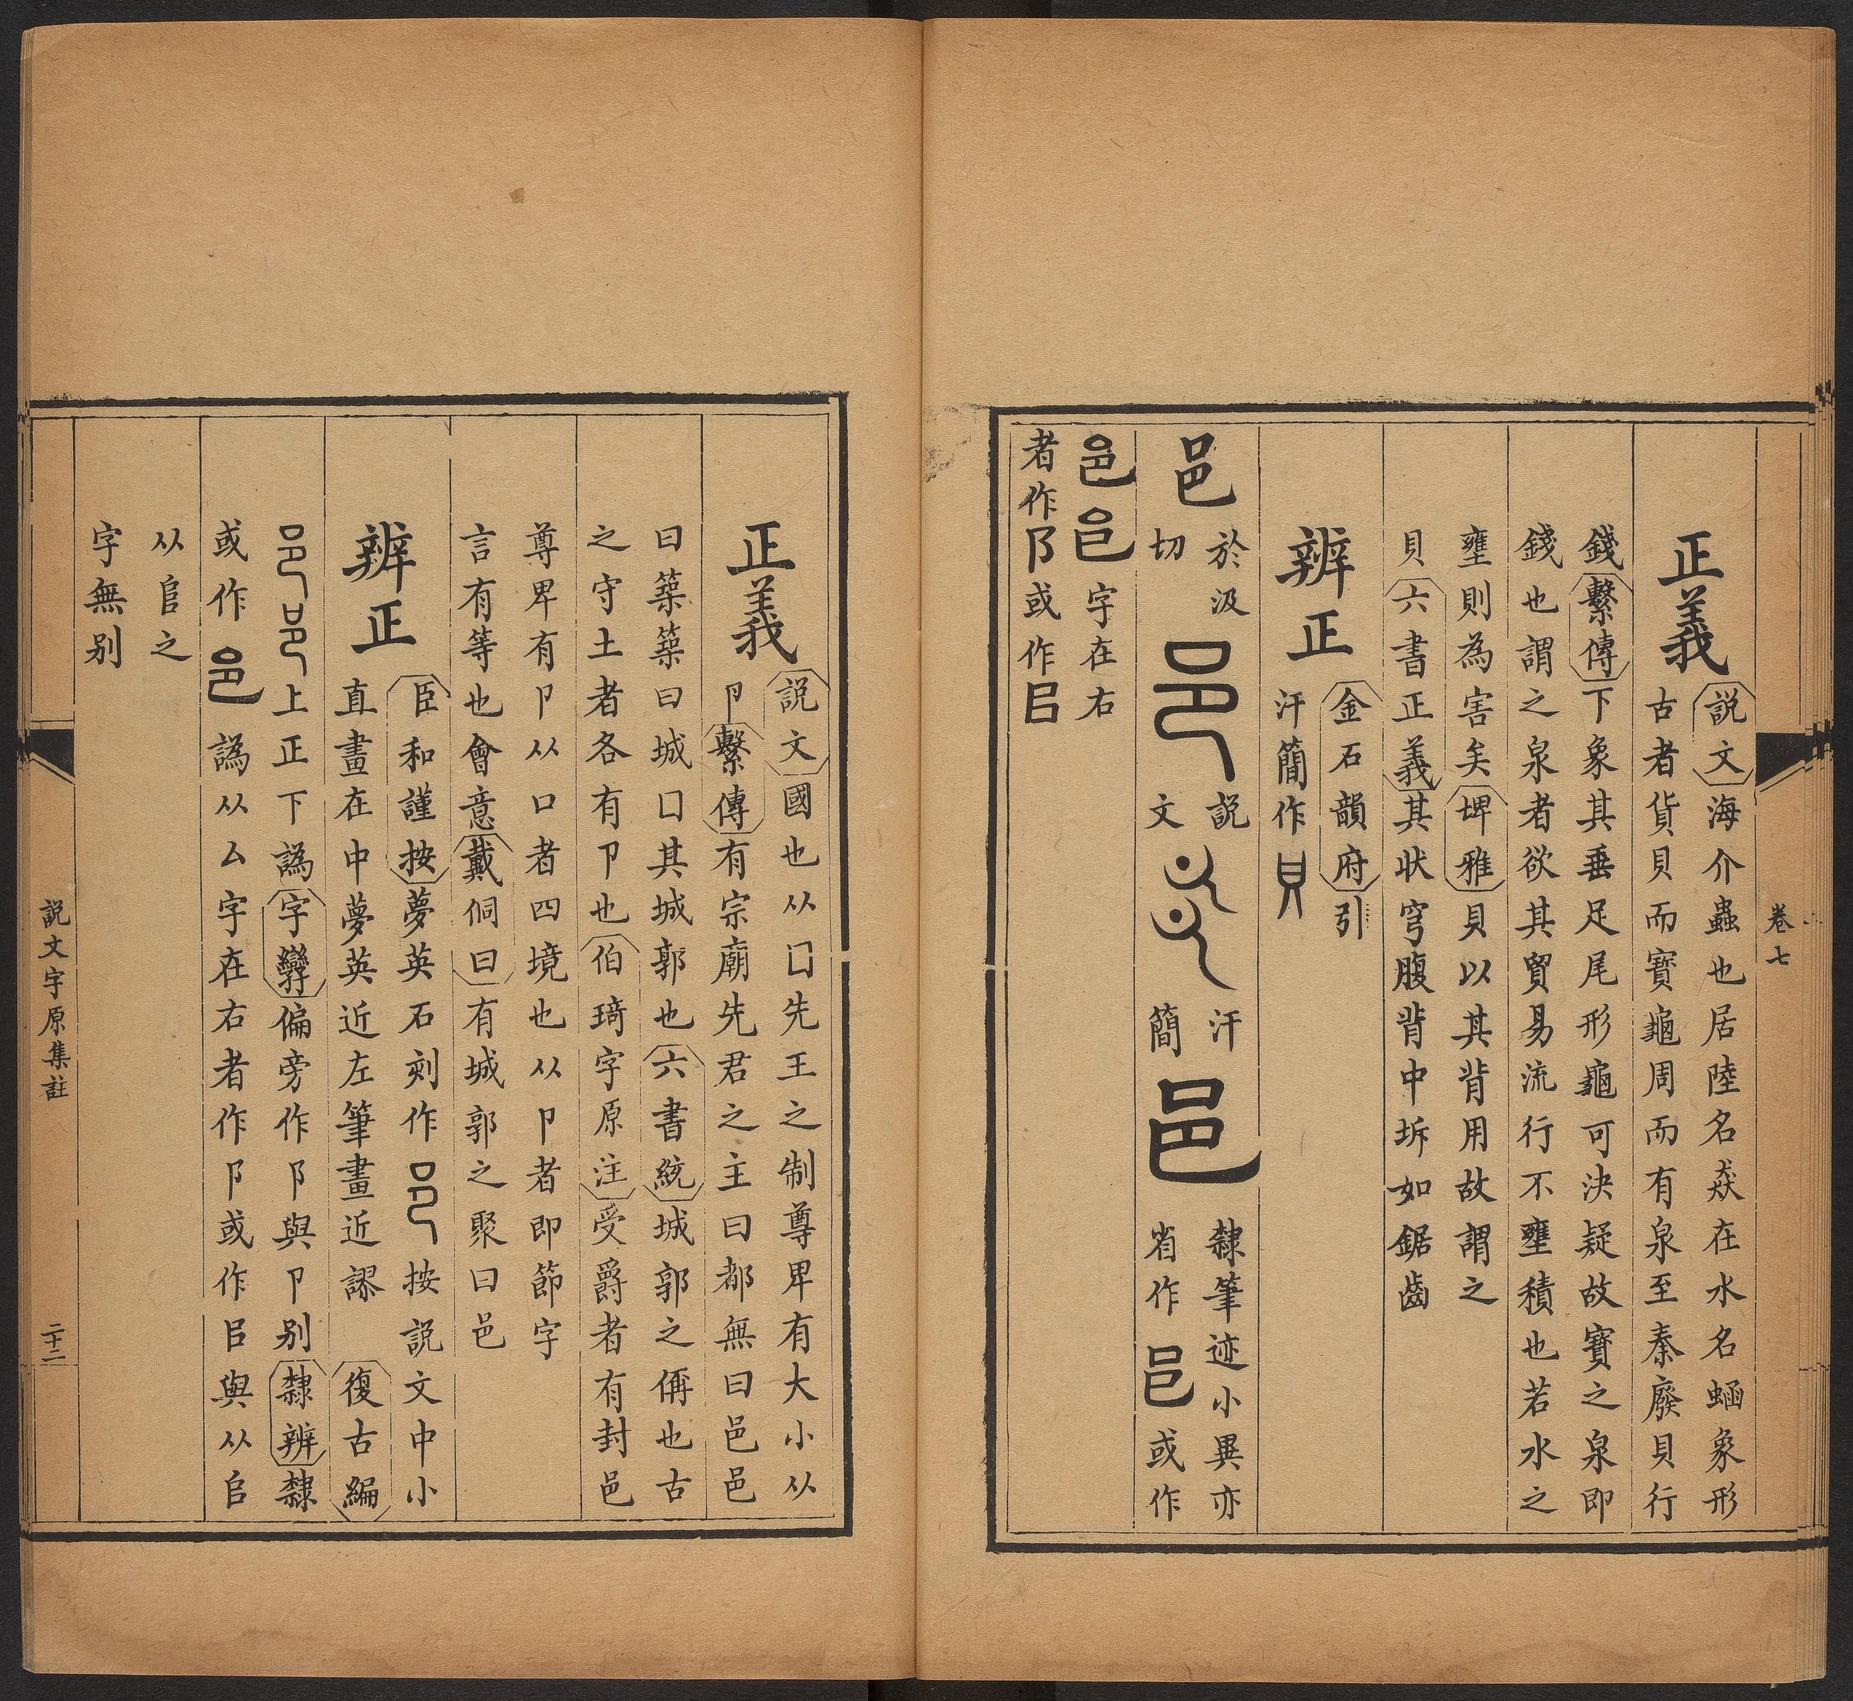 卷七
正義
説文海介蟲也居陸名猋在水名蜬象形
古者貨貝而寳龜周而有泉至秦廢貝行
錢繫傳下象其垂足尾形龜可決疑故寳之泉即
錢也謂之泉者欲其貿易流行不壅積也若水之
壅則為害矣埤雅貝以其背用故謂之
貝六書正義其狀穹腹背中坼如鋸齒
辨正
金石韻府引
汗簡作
邑
於汲
切
説
文
汗
簡
邑
隸筆迹小異亦
省作邑或作
邑邑字在右
者作阝或作㠯
正義
説文國也从囗先王之制尊卑有大小从
卪繫傳有宗廟先君之主曰都無曰邑邑
曰築築曰城囗其城郭也六書統城郭之偁也古
之守土者各有卩也伯琦字原注受爵者有封邑
尊卑有卩从口者四境也从卩者即節字
言有等也會意戴侗曰有城郭之聚曰邑
辨正
臣和謹按夢英石刻作按説文中小
直畫在中夢英近左筆畫近謬 復古編
上正下譌字孿偏旁作阝與卩别隸辨隸
或作邑譌从厶字在右者作阝或作㠯與从㠯
从㠯之
字無别
説文字原集註
二十二